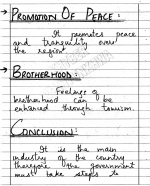 → PROMOTION OF PEACE:
It promotes peace
and tranquility over
the region
→ BROTHERHOOD:
Feelings of
brotherhood can be
enhanced through tourism.
CONCLUSION:
It is the main
industry of the country
therefore the government
must take steps to